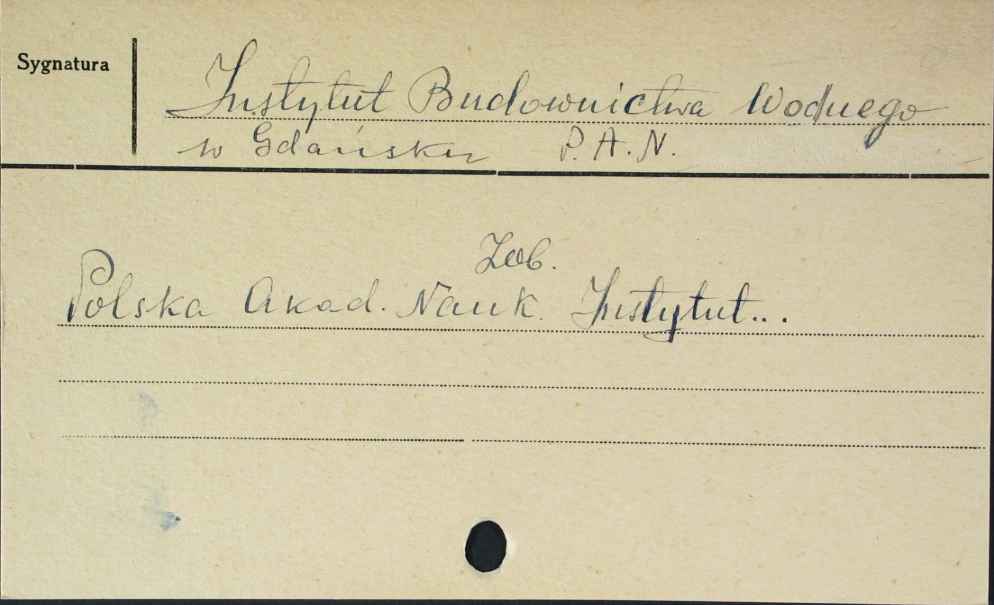 Sygnatura
Instytut Budownictwa Wodnego
w Gdańsku P.A.N.
Zob.
Polska Akad. Nauk. Instytut...